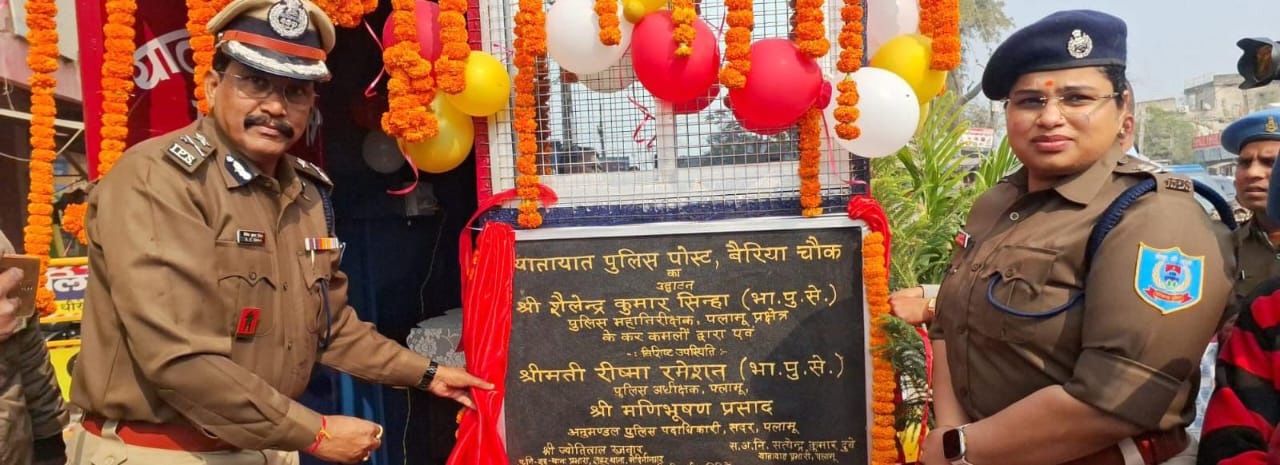 IPS
यातायात पुलिस पोस्ट, बैरिया चौक
का
उद्घाटन
श्री शैलेन्द्र कुमार सिन्हा (भा.पु.से.)
पुलिस महानिरीक्षक, पलामू प्रक्षेत्र
के कर कमलों द्वारा एवं
-: विशिष्ट उपस्थिति :-
श्रीमती रीष्मा रमेशन (भा.पु.से.)
पुलिस अधीक्षक, पलामू,
श्री मणिभूषण प्रसाद
अनुमण्डल पुलिस पदाधिकारी, सदर
श्री ज्योतिलाल रजवार,
स.अ.नि. सत्येन्द्र कुमार दुबे
यातायात प्रभारी, पलामू
IPS